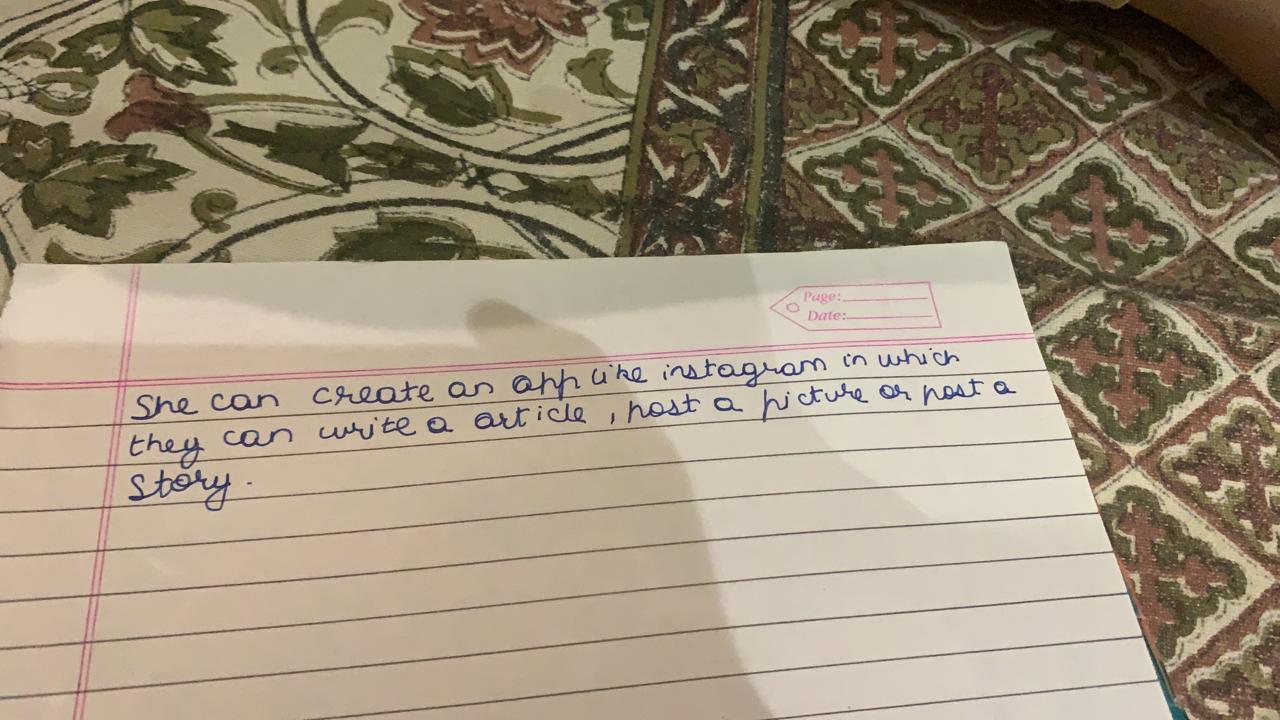 Page:
Date:
She can create an app like instagram in which
they can write a article , post a picture or post a
story.